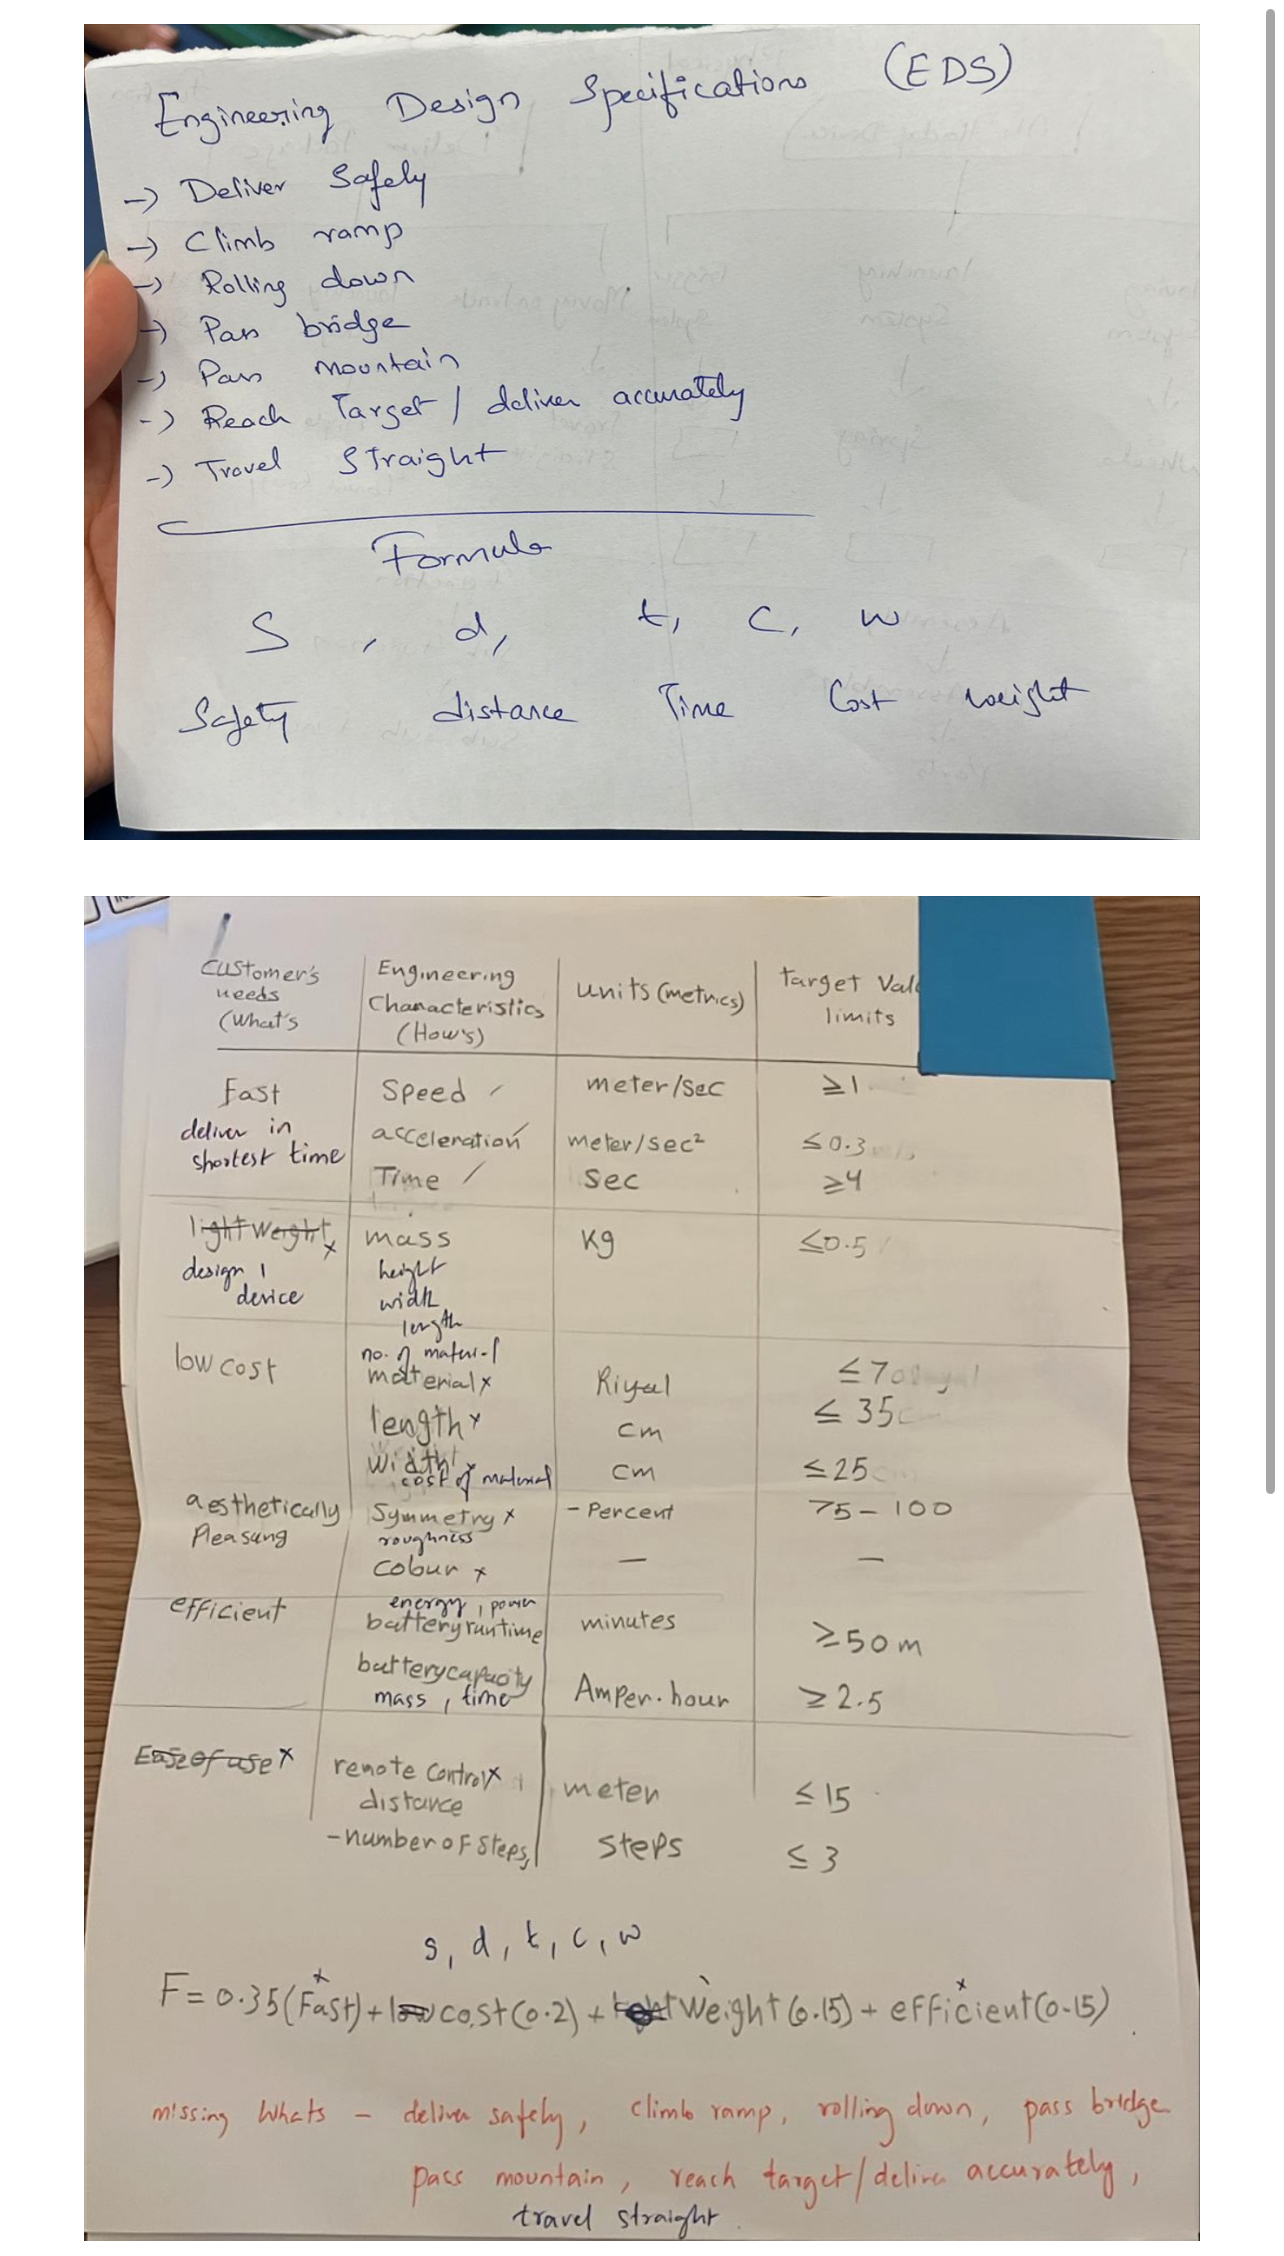 Engineering Design Specifications (EDS)
-> Deliver Safely
-> Climb ramp
-> Rolling down
-> Pass bridge
-> Pass mountain
-> Reach Target / deliver accurately
-> Travel Straight
Formula
S , d, t, c, w
Safety distance Time Cost weight
Customer's needs (What's
Engineering Characteristics (How's)
units (metrics)
target Val
limits
Fast
deliver in
shortest time
Speed
meter/sec
≥1
acceleration
meter/sec²
≤0.3
Time
Sec
≥4
light weight x
design,
device
mass
Kg
≤0.5
height
width
length
low cost
no. of material
material x
Riyal
≤70
length x
cm
≤ 35
width x
cm
≤25
cost of material
aesthetically
Pleasing
Symmetry x
- Percent
75-100
roughness
Colour x
—
—
efficient
energy, power
battery runtime
minutes
≥50m
battery capacity
Amper.hour
≥2.5
mass, time
Ease of use x
remote control x
distance
meter
≤15
-number of Steps,
Steps
≤ 3
s, d, t, c, w
F= 0.35(Fast) + low cost (0.2) + Weight (0.15) + efficient (0.15)
missing Whats - deliver safely, climb ramp, rolling down, pass bridge
pass mountain, reach target/deliver accurately,
travel straight.